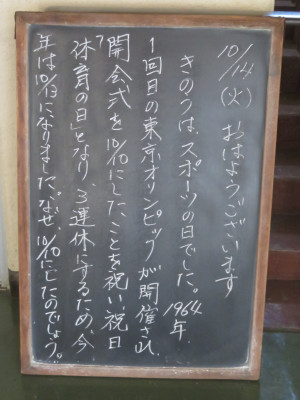 10/14(火) おはようございます
きのうは、スポーツの日でした。1964年、
1回目の東京オリンピックが開催され、
開会式を10/10にした、ことを祝い、祝日
「体育の日」となり、3連休にするため、今
年は10/13に、なりました。なぜ、10/10にしたのでしょう。